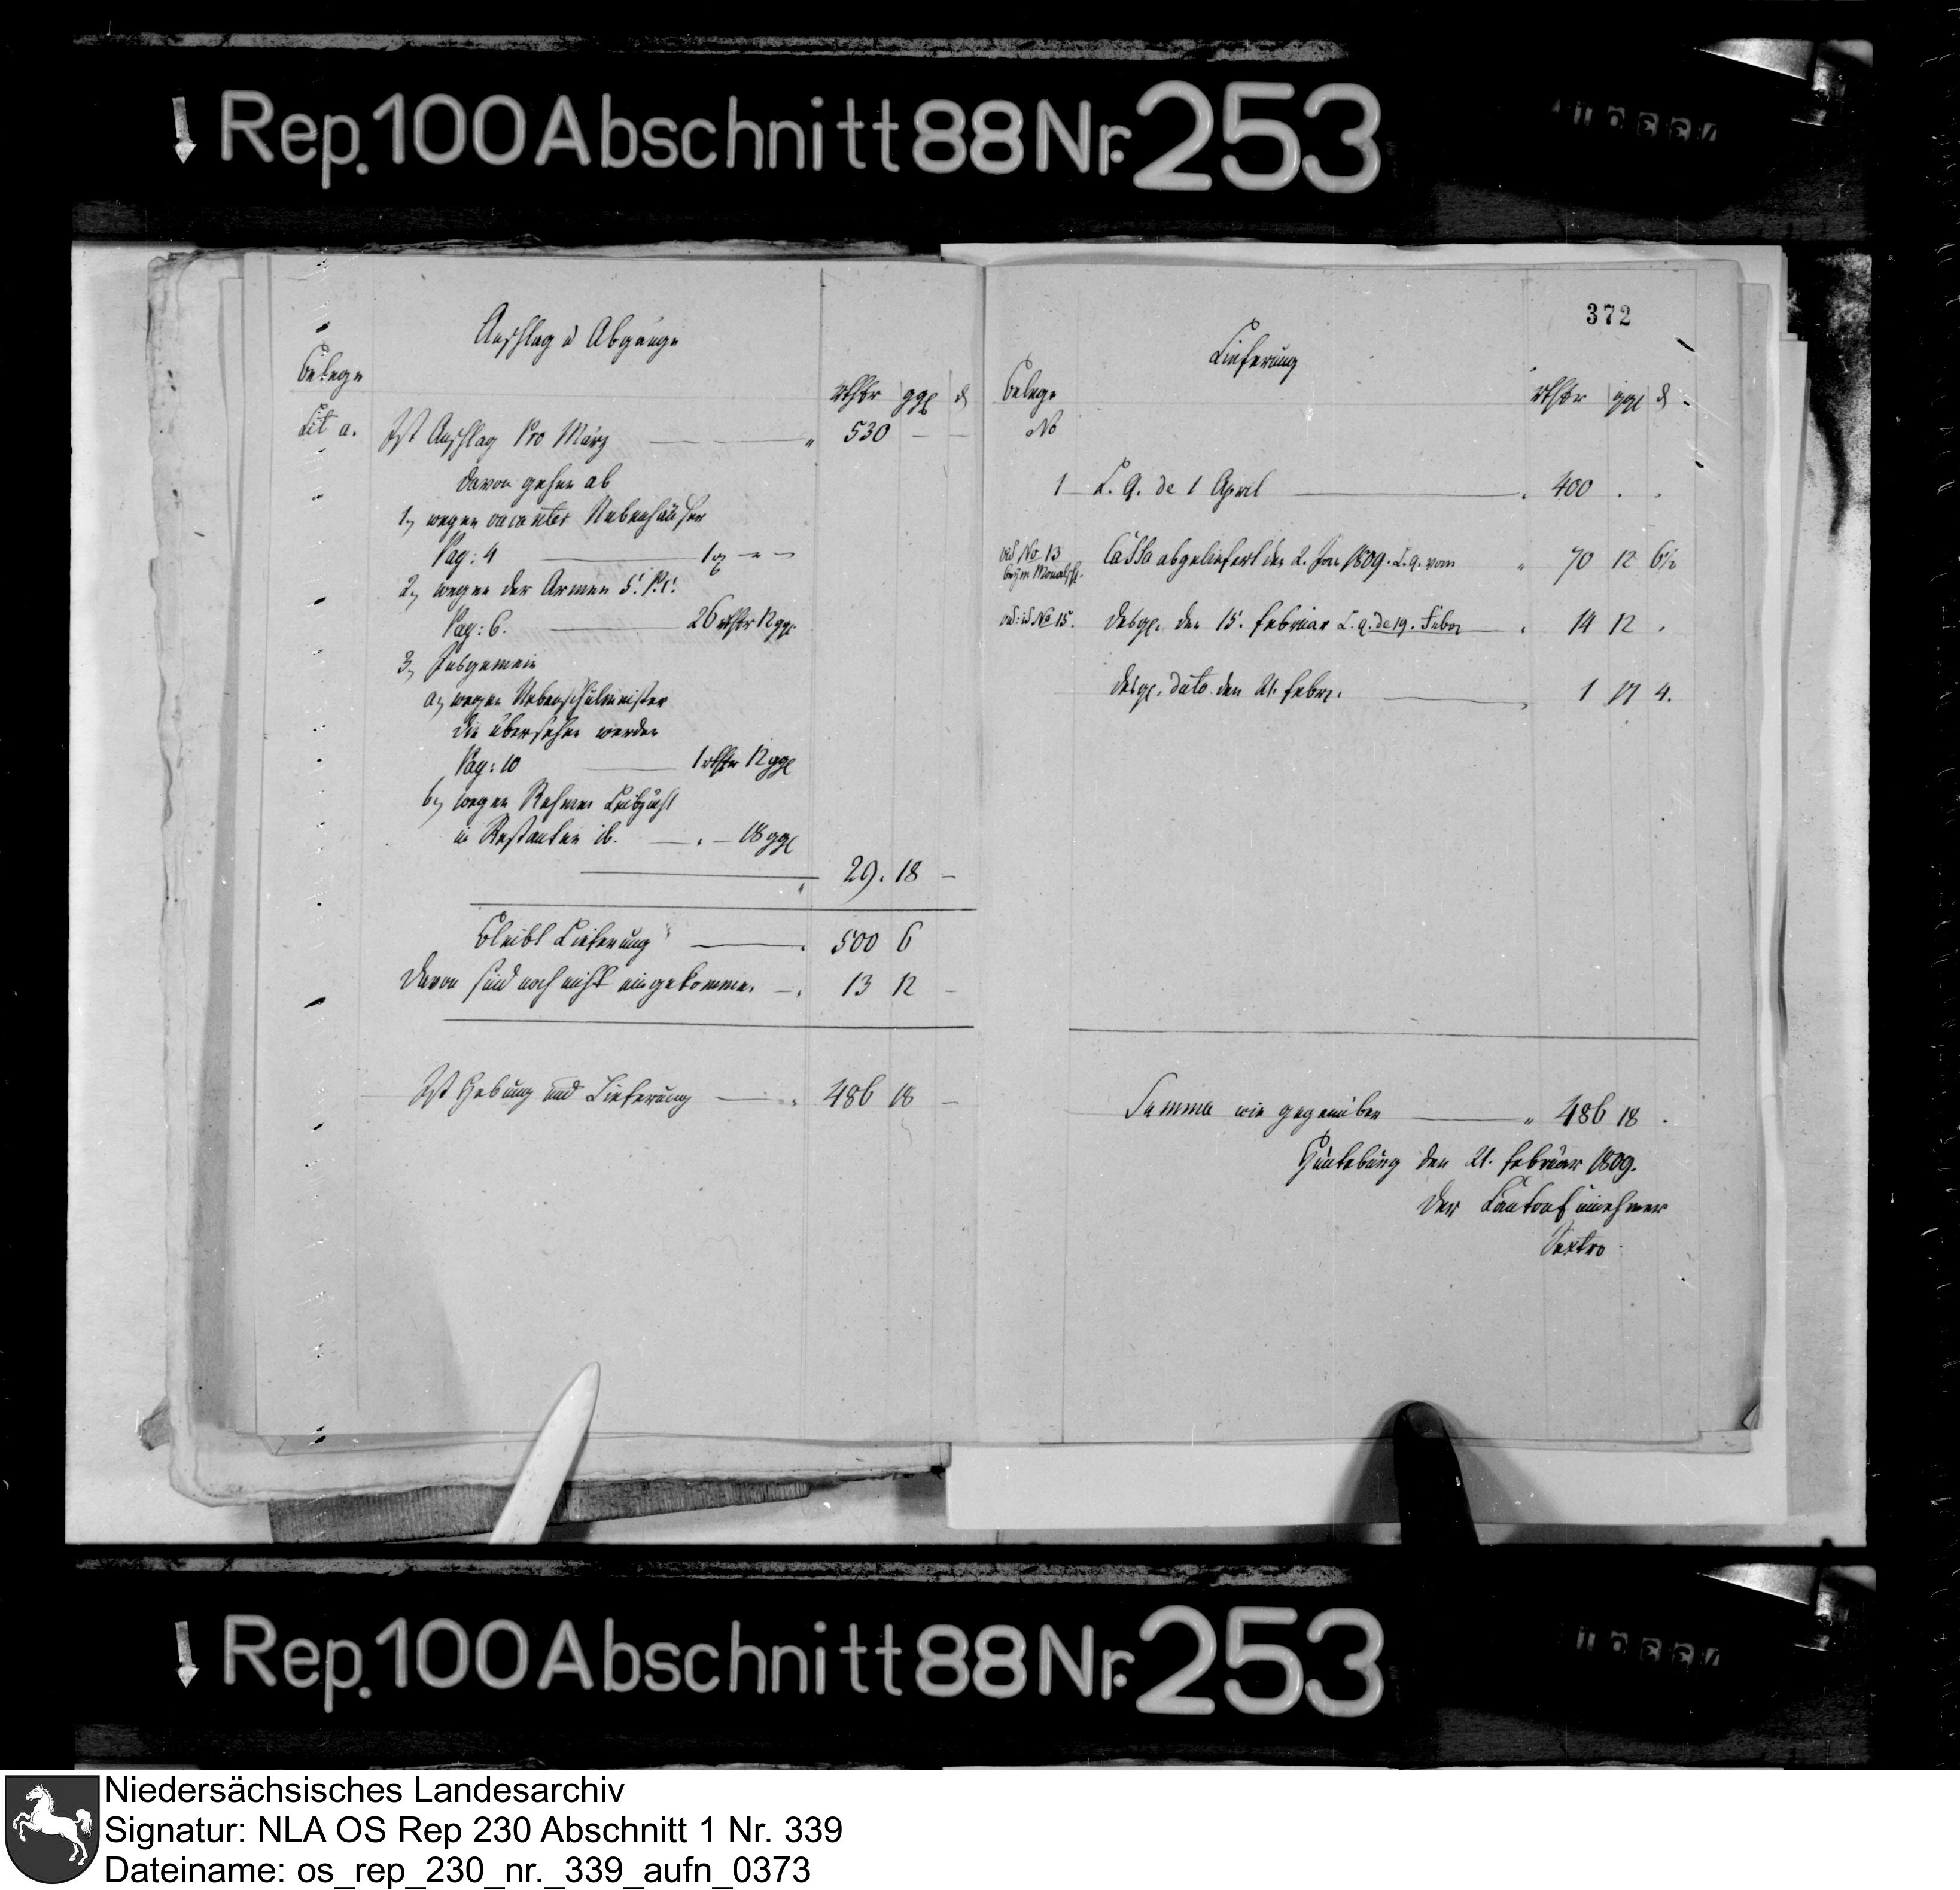 Rep. 100 Abschnitt 88 Nr. 253
372
Anschlag u Abgänge
Belege
rthlr ggl d
Lit a. Ist Anschlag Pro März 530 — —
davon gehen ab
1, wegen vacanter Nebenhäuser
Pag: 4 1 — —
2, wegen der Armen 5. P.C.
Pag: 6. 26 rthlr 12 ggl
3, Insgemein
a, wegen Nebenschulmeister
die übersehen werden
Pag: 10 1 rthlr 12 ggl
b, wegen Leibzucht
in Restanten ib. 18 ggl
29. 18 —
Bleibt Lieferung 500 6
davon sind noch nicht eingekommen 13 12 —
Ist Hebung und Lieferung 486 18 —
Lieferung
Belege
rthlr ggl d
No
1 L. q. de 1 April 400 . .
ad No 13 Cassa abgeliefert den 2. Jan 1809. L. q. vom 70 12 6½
beym Monat
No 15. desgl. den 15. Februar L. q. de 19. Febr 14 12 .
desgl. dato den 21. Febr. 1 17 4.
Summa wie gegenüber 486 18 .
Hunteburg den 21. Februar 1809.
der Cantonseinnehmer
Sextro
Rep. 100 Abschnitt 88 Nr. 253
Niedersächsisches Landesarchiv
Signatur: NLA OS Rep 230 Abschnitt 1 Nr. 339
Dateiname: os_rep_230_nr._339_aufn_0373